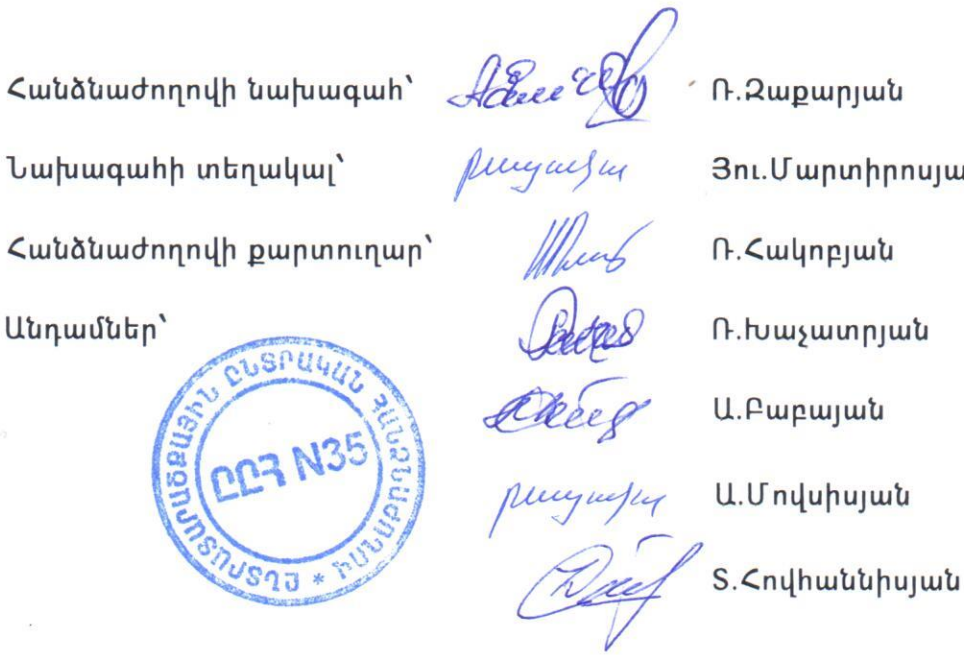 Հանձնաժողովի նախագահ՝ Ռ.Զաքարյան
Նախագահի տեղակալ՝ բացակա Յու.Մարտիրոսյա
Հանձնաժողովի քարտուղար՝ Ռ.Հակոբյան
Անդամներ՝ Ռ.Խաչատրյան
Ա.Բաբայան
բացակա Ա.Մովսիսյան
Տ.Հովհաննիսյան
ԸՆՏՐԱՏԱՐԱԾՔԱՅԻՆ ԸՆՏՐԱԿԱՆ ՀԱՆՁՆԱԺՈՂՈՎ
ԸԸՀ N35